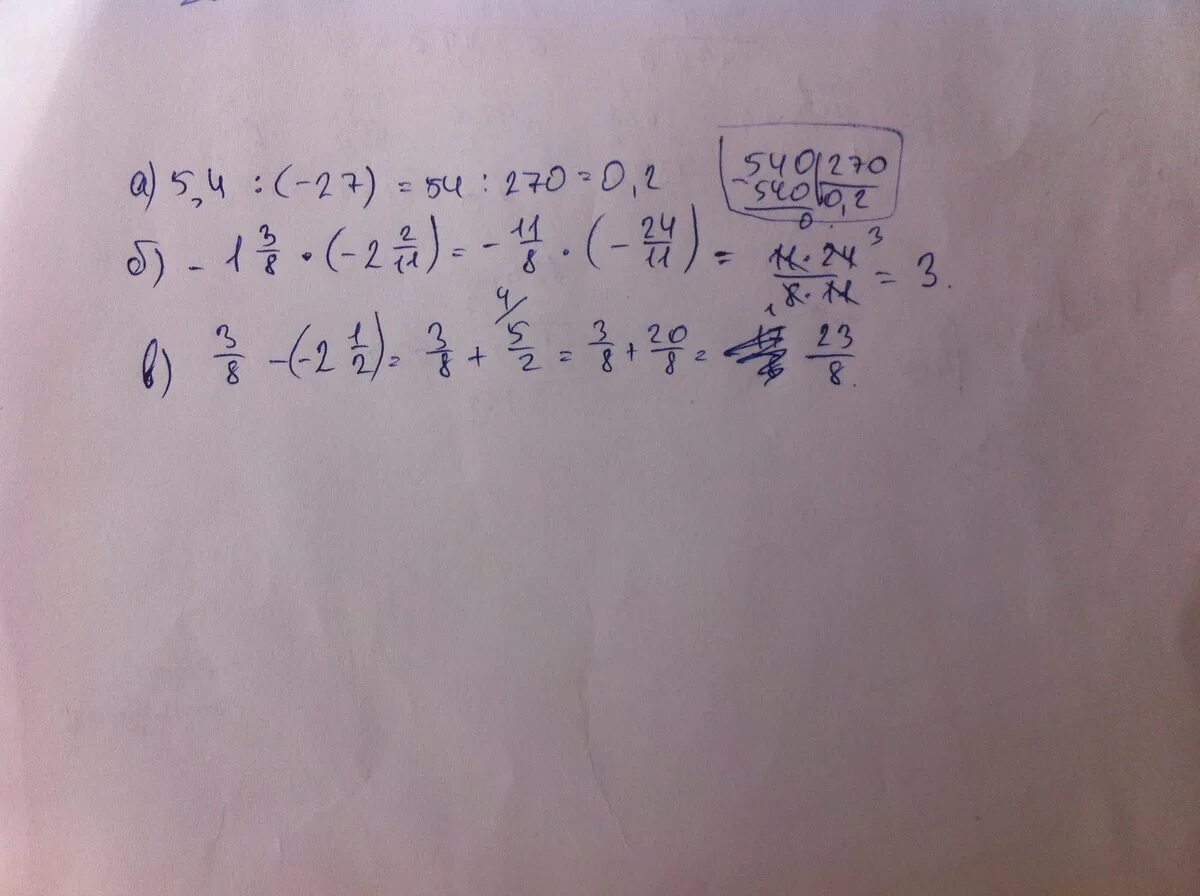 а) 5,4 : (-27) = 54 : 270 = 0,2
540 | 270
- 540 | 0,2
0
б) - 1 3/8 · (-2 2/11) = - 11/8 · (- 24/11) = 11·24 3 / 8·11 1 = 3.
в) 3/8 - (-2 1/2) = 3/8 + 5/2 4/ = 3/8 + 20/8 = 23/8.